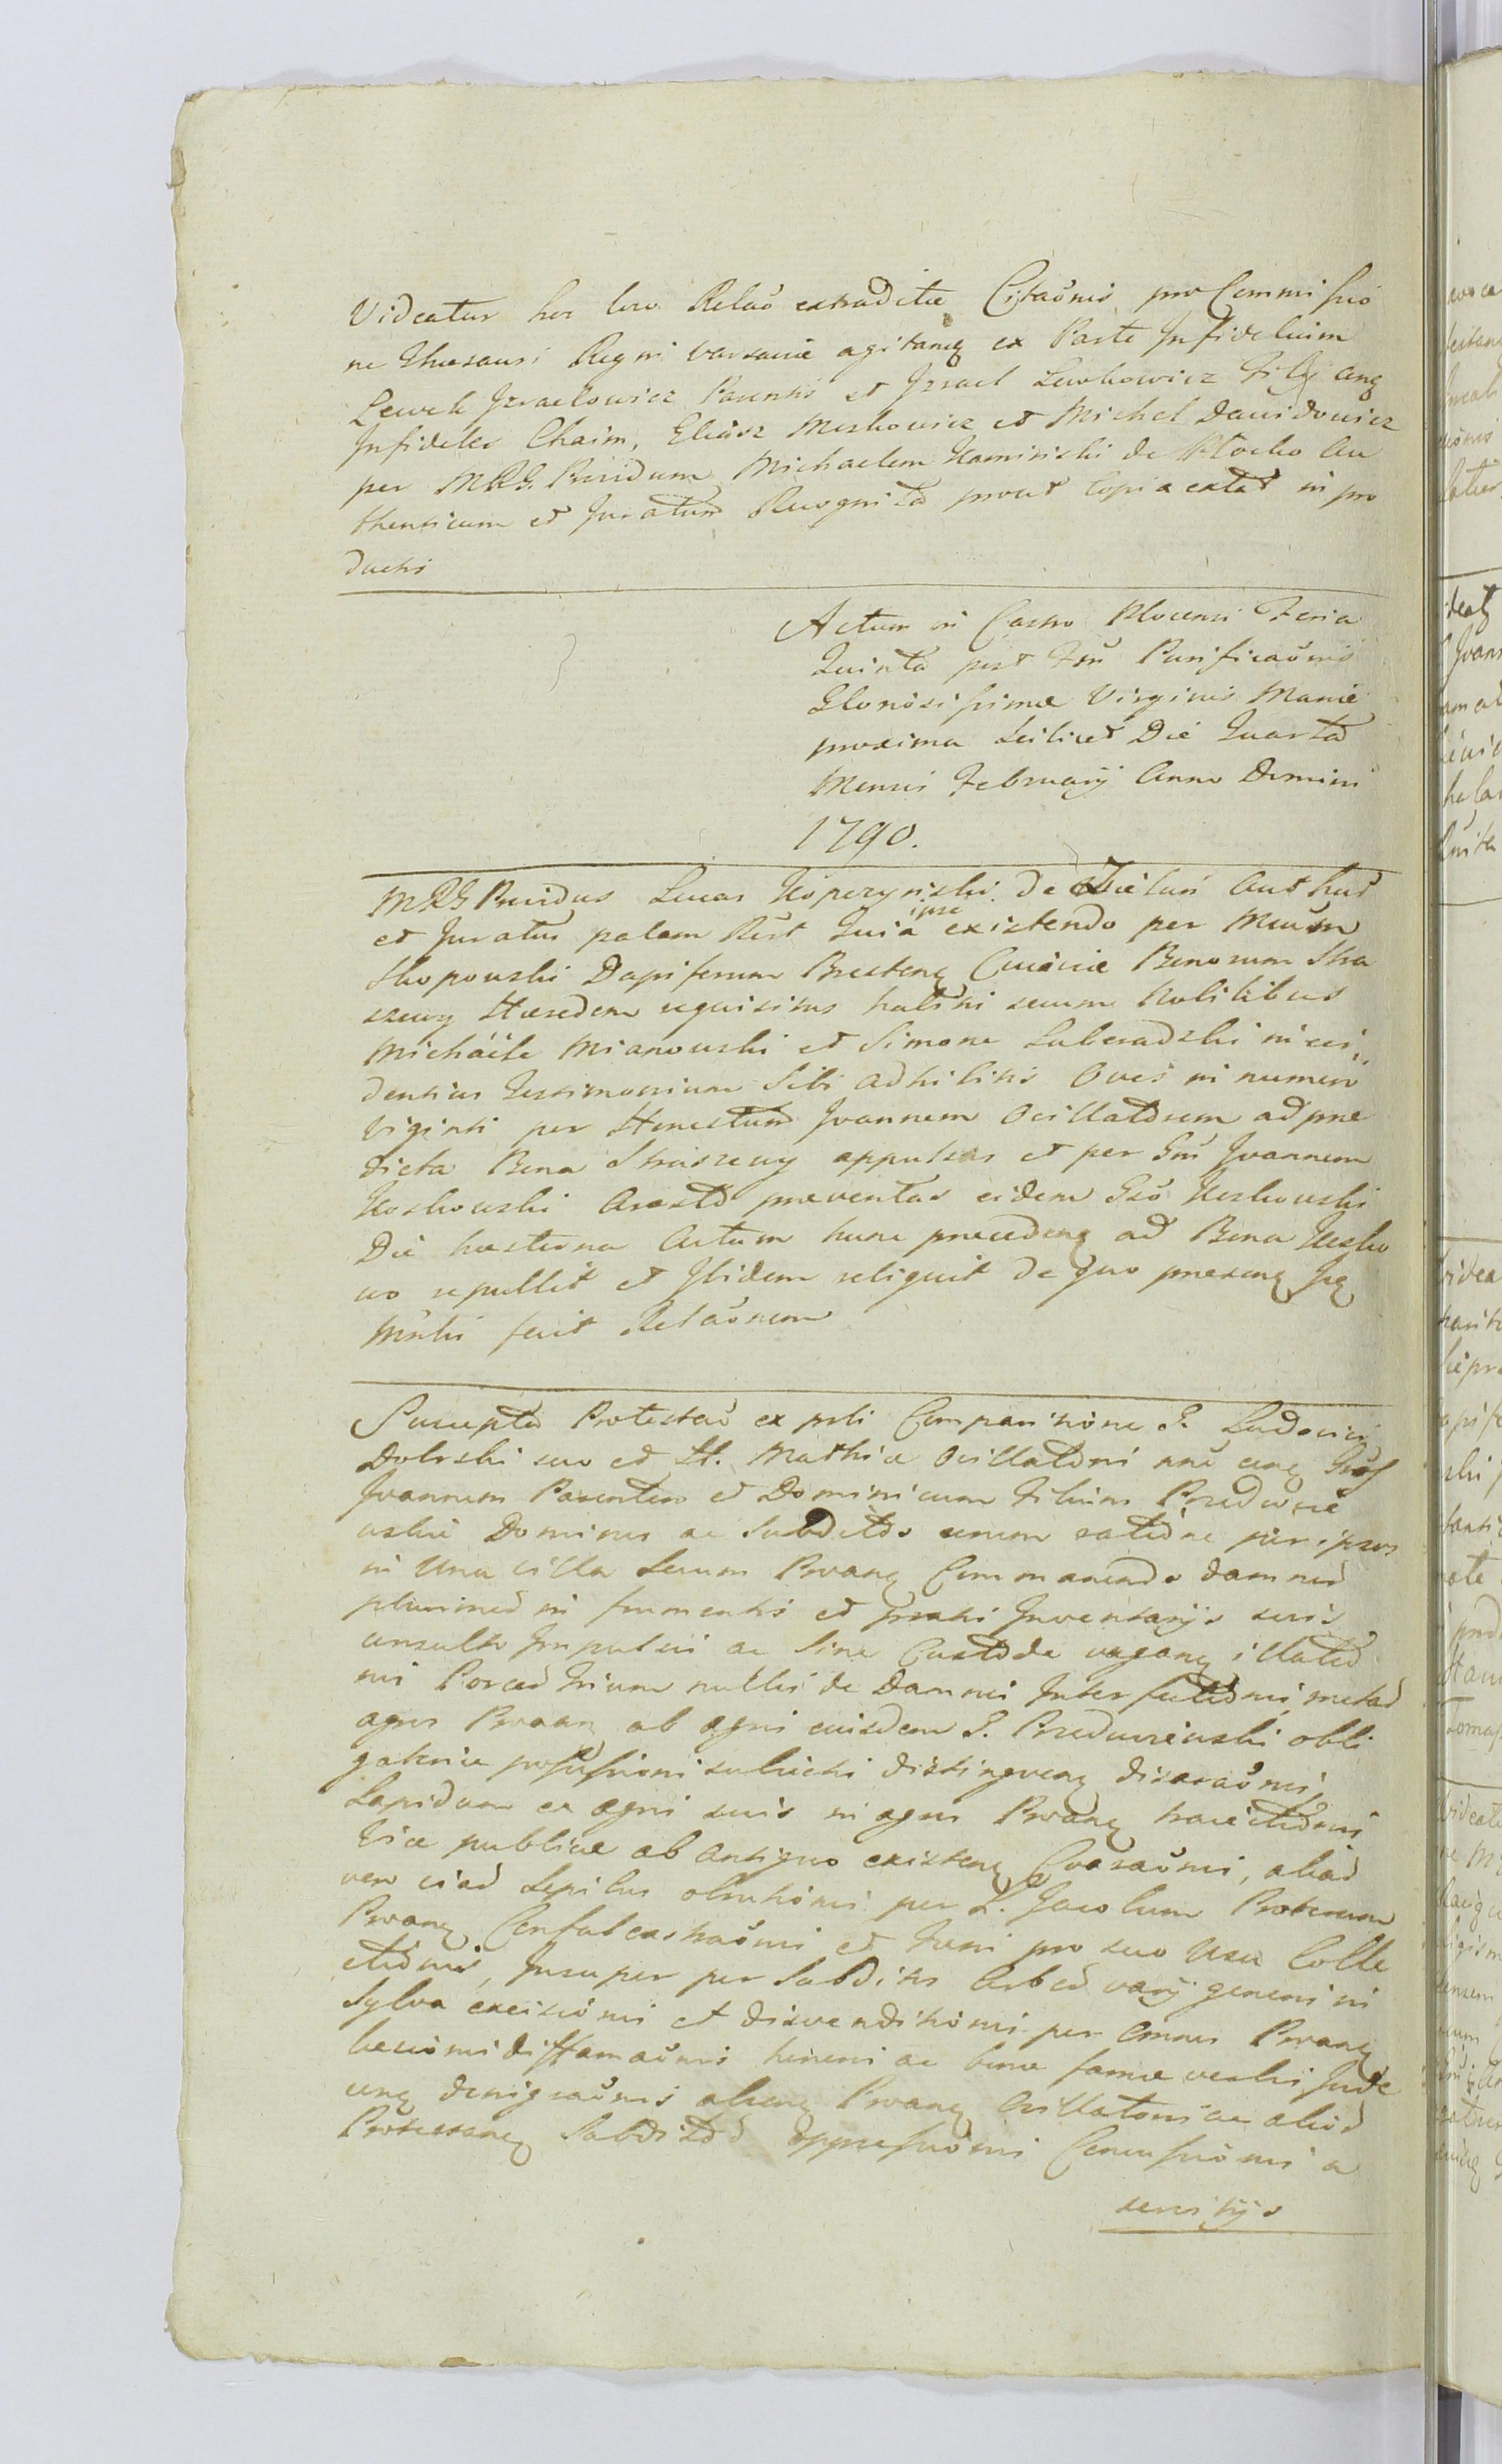 Videatur hoc loco Relao extraditae Citaonis pro Commissio
ne Thesauri Regni Varsaviae agitanq ex Parte Infidelium
Lewek Izraelowicz Parentis et Izrael Lewkowicz Filij anq
Infideles Chaim, Eliasz Meszkowicz et Michel Dawidowicz
per MRG. Providum Michaelem Kaminski de Plocko Au
thenticum et Juratum Recognita prout Copia extat in pro
ductis
Actum in Castro Plocensi Feria
Quinta post Fm Purificaonis
Gloriosissimae Virginis Mariae
proxima scilicet Die Quarta
Mensis Februarij Anno Domini
1790.
MRG Providus Lucas Koperzynski de Autthus
et Juratus palam Rt Quia ipse existendo per Mcum
Skopowski Dapiferum Bresten Cuiaviae Bonorum Stra
szewy Haeredem requisitus habitis secum Nobilibus
Michaele Mianowski et Simone Luberadzki in evi
dentius Testimonium sibi adhibitis Oves in numero
Viginti per Honestum Joannem Ovillatorem ad prae
dicta Bona Straszewy appulsas et per Gm Joannem
Koskowski Aresto praeventas eidem Gso Koskowski
Die hesterna Actum hunc praecedenq ad Bona Kosko
wo repullit et Ibidem reliquit de quo praesenq Jq
Mnlis fecit Relaonem
Suscepta Protestao ex psli Comparitione G. Ludovici
Dobrski suo et H. Mathia Ovillatoris nne cunq Gnos
Joannem Parentem et Dominicum Filium
Dominos ac Subditos eorum ratione per ipsos
in Una villa secum Proanq Commanendo damnor
plurimor in frumentis et pratis Inventarijs suis
consulto Impulsis ac sine Custode vaganq illator
nis Porcor Trium nullis de Damnis Interfectionis, metas
agros Proan ab agris eiusdem G. obli
gatoriae possessioni subiectis distinguenq disaraonis,
Lapidum ex agris suis in agros Proanq traiectionis
Viae publicae ab antiquo existenq Coaraonis, aliad
vero viad Sepibus obrutionis per L. Jacobum Proterum
Proanq et Foeni pro suo Usu Colle
ctionis, Insuper per Subditos Arbor varij generis in
Sylva excisionis et divenditionis per omnes Proanq
diffamaonis honoris ac bonae famae
unq denigraonis alienq Proanq Ovillatoris ac alior
Protestanq Subditor oppressionis Concussionis a
servitijs